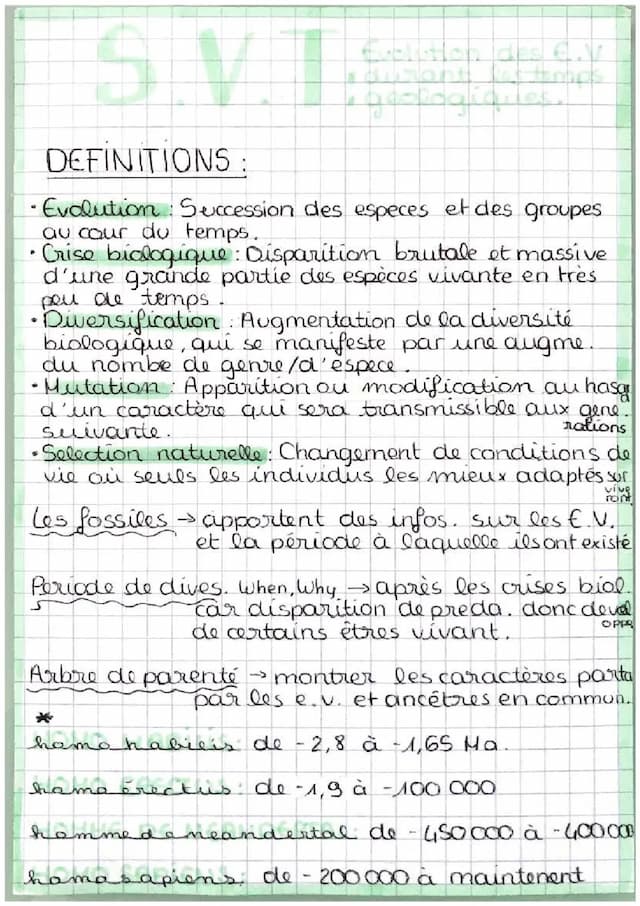 S.V.T : Evolution des E.V
durant les temps
géologiques.
DEFINITIONS :
• Evolution : Succession des especes et des groupes
au cour du temps.
• Crise biologique : Disparition brutale et massive
d'une grande partie des espèces vivante en très
peu de temps.
• Diversification : Augmentation de la diversité
biologique, qui se manifeste par une augme.
du nombe de genre/d'espece.
• Mutation : Apparition ou modification au hasard
d'un caractère qui sera transmissible aux géné.
rations
suivante.
• Selection naturelle : Changement de conditions de
vie où seuls les individus les mieux adaptés sur
vive
ront
Les fossiles → apportent des infos. sur les E.V.
et la période à laquelle ils ont existé
Periode de dives. When, Why → après les crises biol.
car disparition de preda. donc devel
oppe
de certains êtres vivant.
Arbre de parenté → montrer les caractères parta
par les e.v. et ancêtres en commun.
*
homo habilis : de -2,8 à -1,65 Ma.
homo érectus : de -1,9 à -100 000
homme de neandertal de -450 000 à -400 000
homo sapiens : de -200 000 à maintenent